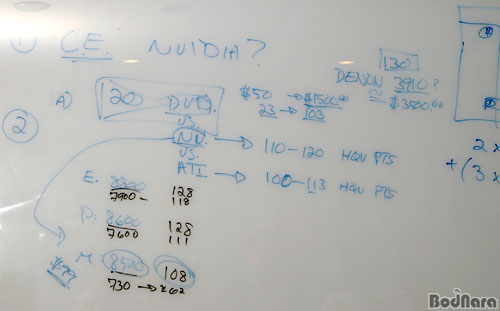 ① C.E. NVIDIA?
130
DENON 3910?
≅ $3500.00
② A) 120 - DVD
$50 → $1500.00
23 → 103
VS.
NV → 110-120 HQV PTS
VS.
ATI → 100-113 HQV PTS
E: 8800 128
7900 - 118
P: 8600 128
7600 111
M: 8500 108
730 →
2x
+ (3x
BodNara